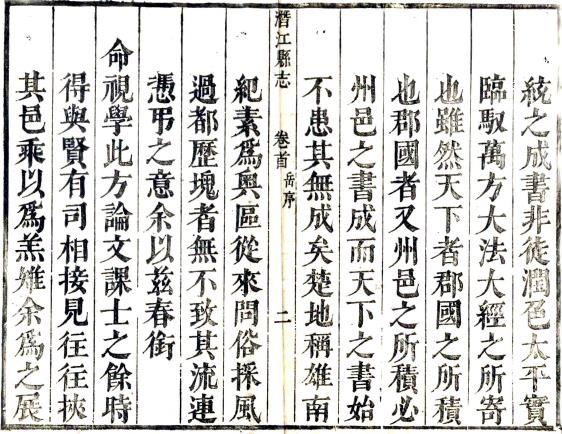 統之成書非徒潤色太平實
臨馭萬方大法大經之所寄
也雖然天下者郡國之所積
也郡國者又州邑之所積必
州邑之書成而天下之書始
不患其無成矣楚地稱雄南
潛江縣志 卷首 岳序 二
紀素爲輿區從來問俗採風
過都歷塊者無不致其流連
憑弔之意余以兹春銜
命視學此方論文課士之餘時
得與賢有司相接見往往挾
其邑乘以爲羔雉余爲之展